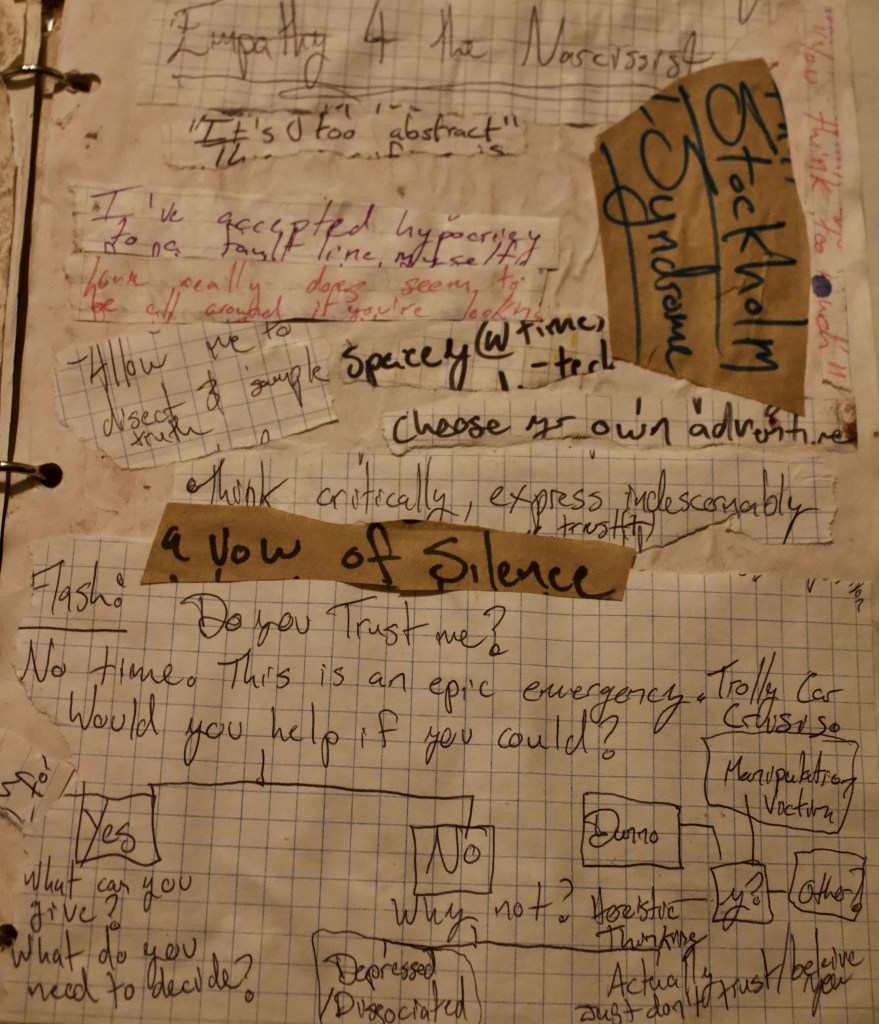 Empathy 4 the Narcissist
"It's too "abstract"
Stockholm
Syndrome
"You think too much"
I've accepted hypocrisy
fault line,
really does seem to
be all around if you're looking
Allow me to
disect & sample
truth
Spacey (w time)
-tech
Choose yr own adventure
Think critically, express indescernably
a Vow of Silence
Flash:
Do you Trust me?
No time. This is an epic emergency.
Trolly Car
Crisis
Would you help if you could?
Manipulation
Victim
Yes
No
Dunno
y?
Other?
What can you
give?
What do you
need to decide?
Why not?
Thinking
Depressed
/Dissociated
Actually
Just don't trust/beleive
you